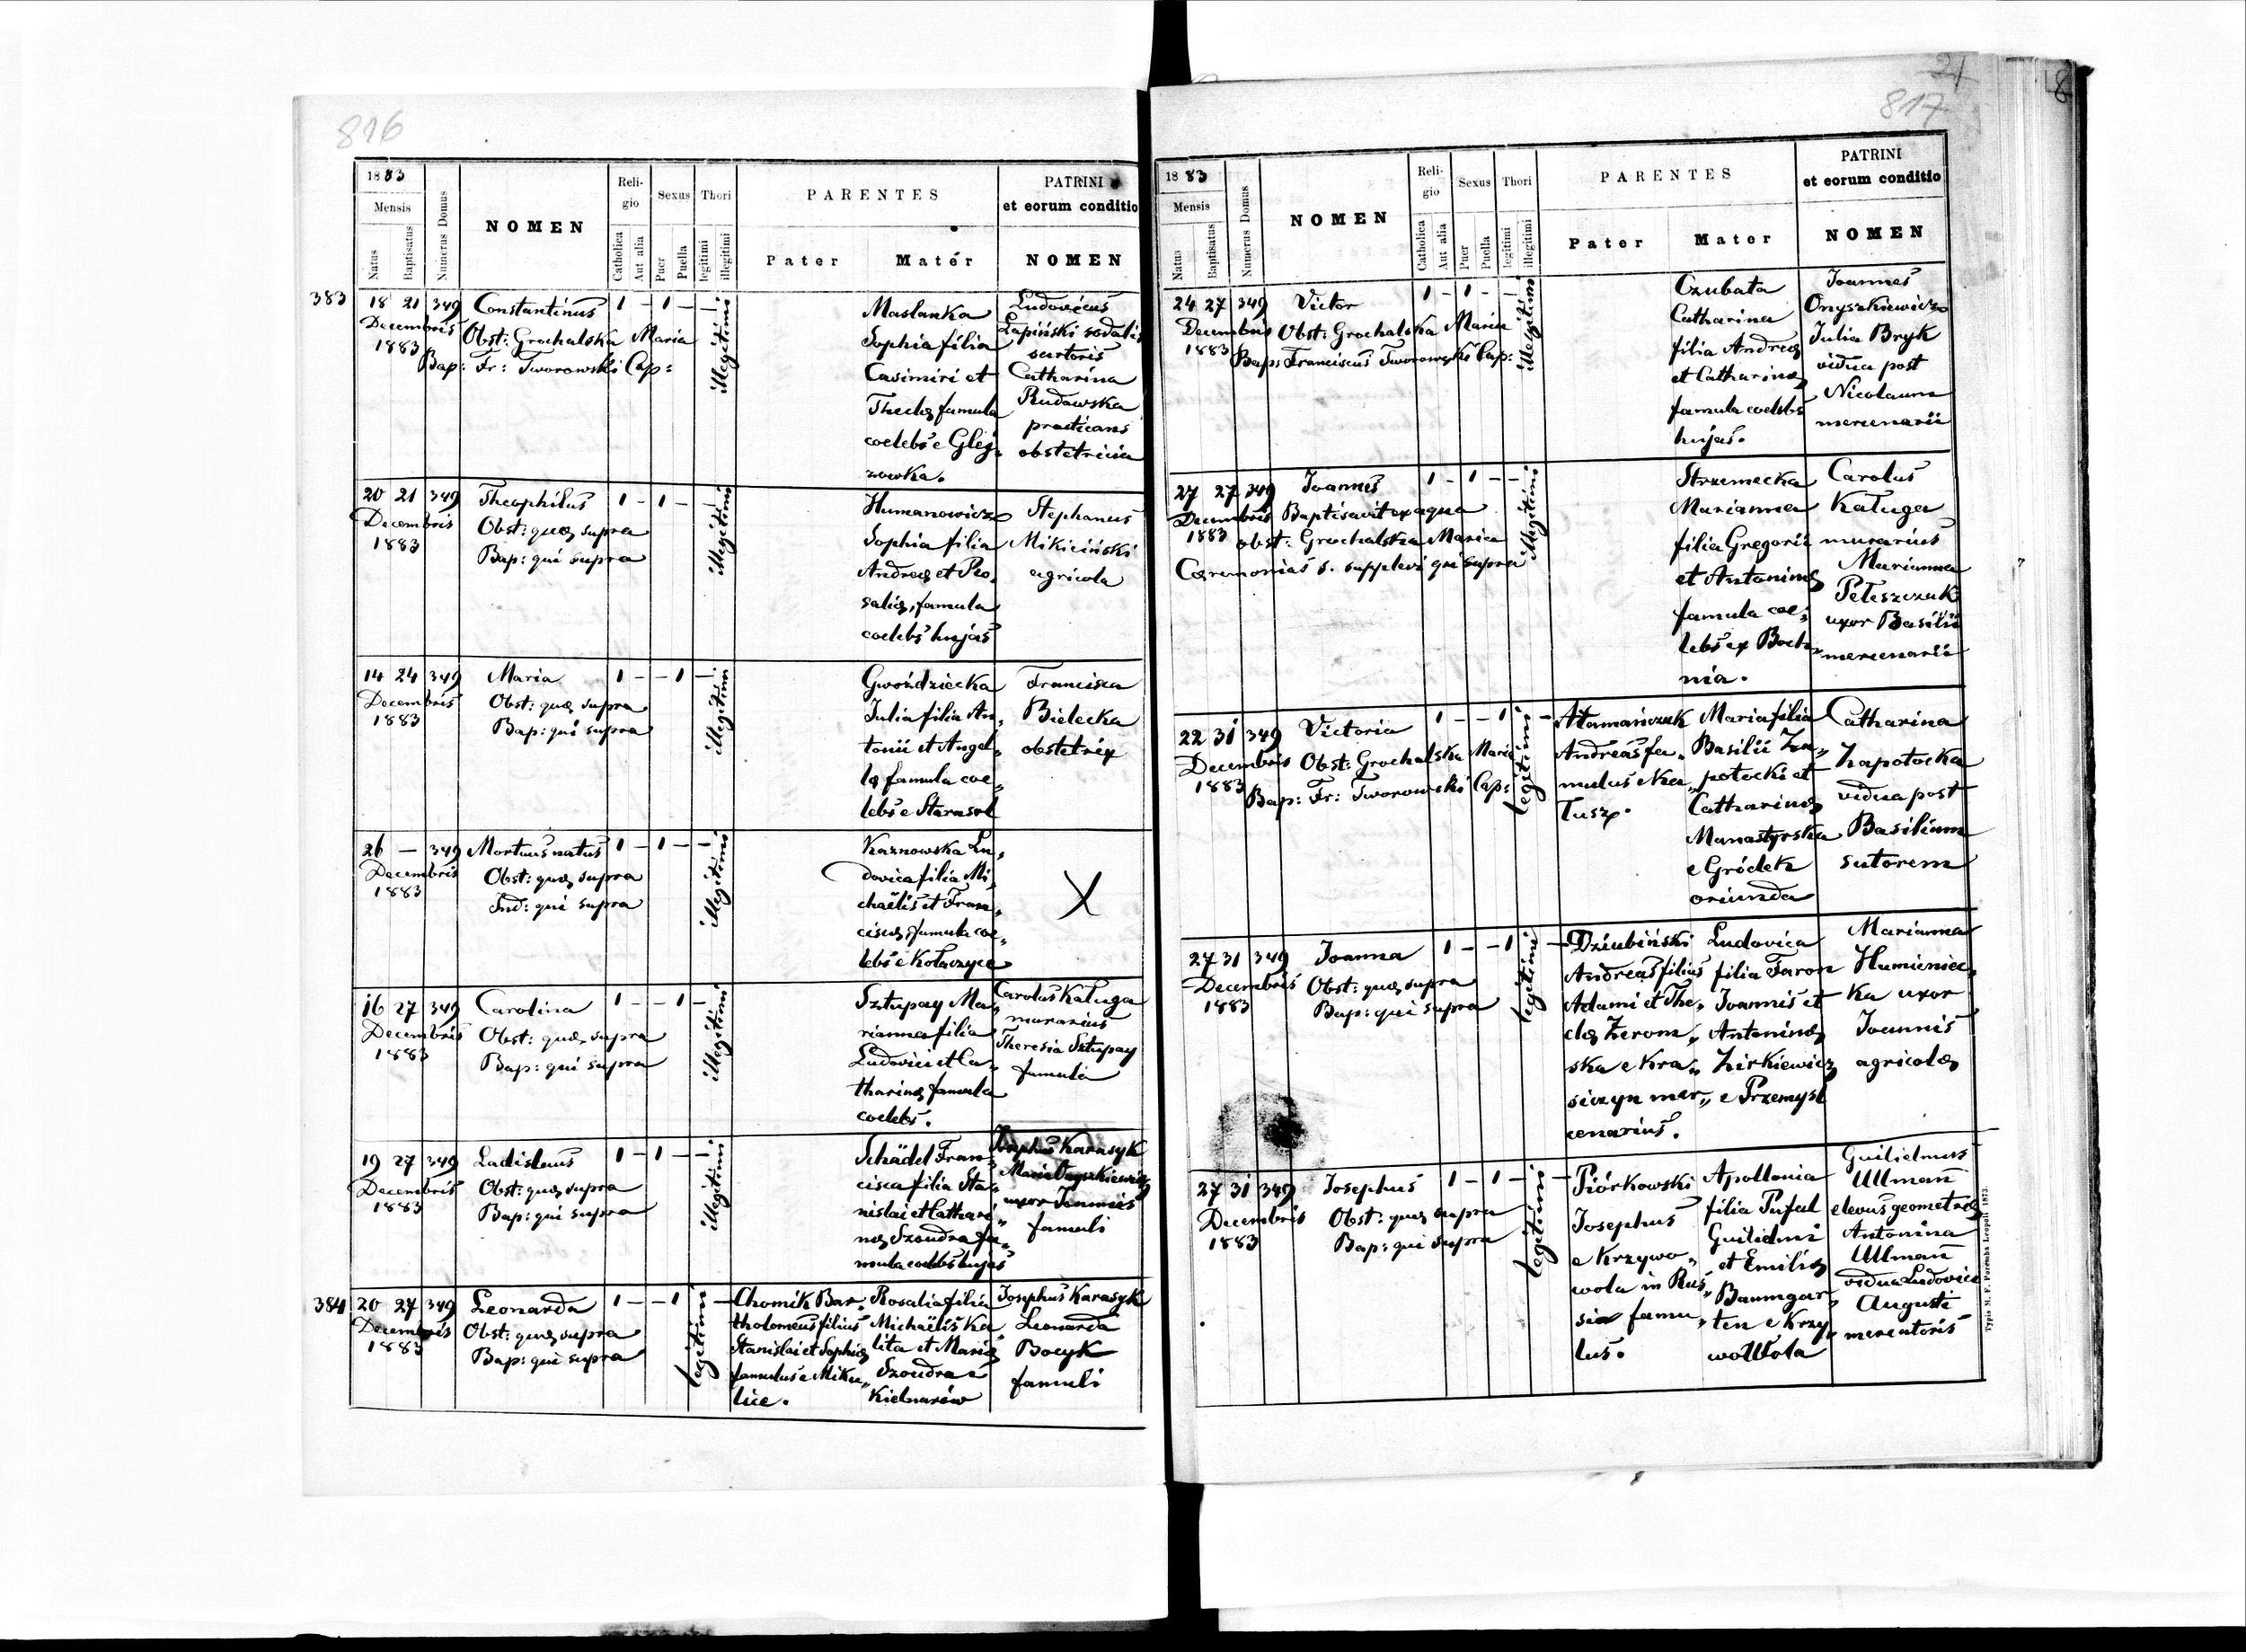 816
1883
Mensis
Natus
Baptisatus
Numerus Domus
NOMEN
Reli-
gio
Catholica
Aut alia
Sexus
Puer
Puella
Thori
legitimi
illegitimi
PARENTES
Pater
Mater
PATRINI
et eorum conditio
NOMEN
383
18 21 349
Decembris
1883
Constantinus
Obst: Grochalska Maria
Bap: Fr: Tworowski Cap:
1 - 1 - - 1
illegitimi
Maslanka
Sophia filia
Casimiri et
Theclę famula
coelebs e Glej
zowka.
Ludovicus
Łapiński sodalis
sartoris
Catharina
Rudawska
practicans
obstetricia
20 21 349
Decembris
1883
Theophilus
Obst: quę supra
Bap: qui supra
1 - 1 - - 1
illegitimi
Humanowicz
Sophia filia
Andreę et Ro,
salię, famula
coelebs hujas
Stephanus
Mikiciński
agricola
14 24 349
Decembris
1883
Maria
Obst: quę supra
Bap: qui supra
1 - - 1 - 1
illegitimi
Gwoździecka
Julia filia An,
tonii et Angel,
lę famula coe,
lebs e Starasol
Francisca
Bielecka
obstetrix
26 — 349
Decembris
1883
Mortuus natus
Obst: quę supra
Ind: qui supra
1 - 1 - - 1
illegitimi
Kaznowska Lu,
dovica filia Mi,
chaëlis et Fran,
ciscę, famula coe,
lebs e Kołaczyce
X
16 27 349
Decembris
1883
Carolina
Obst: quę supra
Bap: qui supra
1 - - 1 - 1
illegitimi
Sztupay Ma,
rianna filia
Ludovici et Ca,
tharinę famula
coelebs.
Carolus Kaługa
murarius
Theresia Sztupay
famula
19 27 349
Decembris
1883
Ladislaus
Obst: quę supra
Bap: qui supra
1 - 1 - - 1
illegitimi
Schädel Fran,
cisca filia Sta,
nislai et Cathari,
nę Szoudra fa,
mula coelebs hujas
Josephus Karasyk
Maria Onyszkiewicz
uxor Joannis
famuli
384
20 27 349
Decembris
1883
Leonarda
Obst: quę supra
Bap: qui supra
1 - - 1 1 -
legitimi
Chomik Bar,
tholomeus filius
Stanislai et Sophię
famulus e Miku,
lice.
Rosalia filia
Michaëlis Ka,
lita et Marię
Szoudra e
Kielnarów
Josephus Karasyk
Leonarda
Bocyk
famuli
21
817
8
1883
Mensis
Natus
Baptisatus
Numerus Domus
NOMEN
Reli-
gio
Catholica
Aut alia
Sexus
Puer
Puella
Thori
legitimi
illegitimi
PARENTES
Pater
Mater
PATRINI
et eorum conditio
NOMEN
24 27 349
Decembris
1883
Victor
Obst: Grochalska Maria
Bap: Franciscus Tworowski Cap:
1 - 1 - - 1
illegitimi
Czubata
Catharina
filia Andreę
et Catharinę
famula coelebs
hujas.
Joannes
Onyszkiewicz
Julia Bryk
vidua post
Nicolaum
mercenarii
27 27 349
Decembris
1883
Joannes
Baptisavit ex aqua
obst: Grochalska Maria
Cęremonias s. supplevi qui supra
1 - 1 - - 1
illegitimi
Strzemecka
Marianna
filia Gregorii
et Antoninę
famula coe,
lebs ex Boch,
nia.
Carolus
Kaługa
murarius
Marianna
Peleszczuk
uxor Basilii
mercenarii
22 31 349
Decembris
1883
Victoria
Obst: Grochalska Maria
Bap: Fr: Tworowski Cap:
1 - - 1 1 -
legitimi
Atamańczuk
Andreas fa,
mulus e Ka,
łusz.
Maria filia
Basilii Za,
potocki et
Catharinę
Manastyrska
e Gródek
oriunda
Catharina
Zapotocka
vidua post
Basilium
sutorem
27 31 349
Decembris
1883
Joanna
Obst: quę supra
Bap: qui supra
1 - - 1 1 -
legitimi
Dziubiński
Andreas filius
Adami et The,
clę Zerom,
ska e Kra,
siczyn mer,
cenarius.
Ludovica
filia Faron
Joannis et
Antoninę
Zirkiewicz
e Przemysl
Marianna
Humienicc,
ka uxor
Joannis
agricolę
27 31 349
Decembris
1883
Josephus
Obst: quę supra
Bap: qui supra
1 - 1 - 1 -
legitimi
Piórkowski
Josephus
e Krzywo,
wola in Rus,
sia famu,
lus.
Apollonia
filia Pufal
Guilielmi
et Emilię
Baumgar,
ten e Krzy,
wowola
Guilielmus
Ullman
elevus geometrę
Antonina
Ullman
vidua Ludovici
Augusti
mercatoris
Typis M. F. Poremba Leopoli 1873.